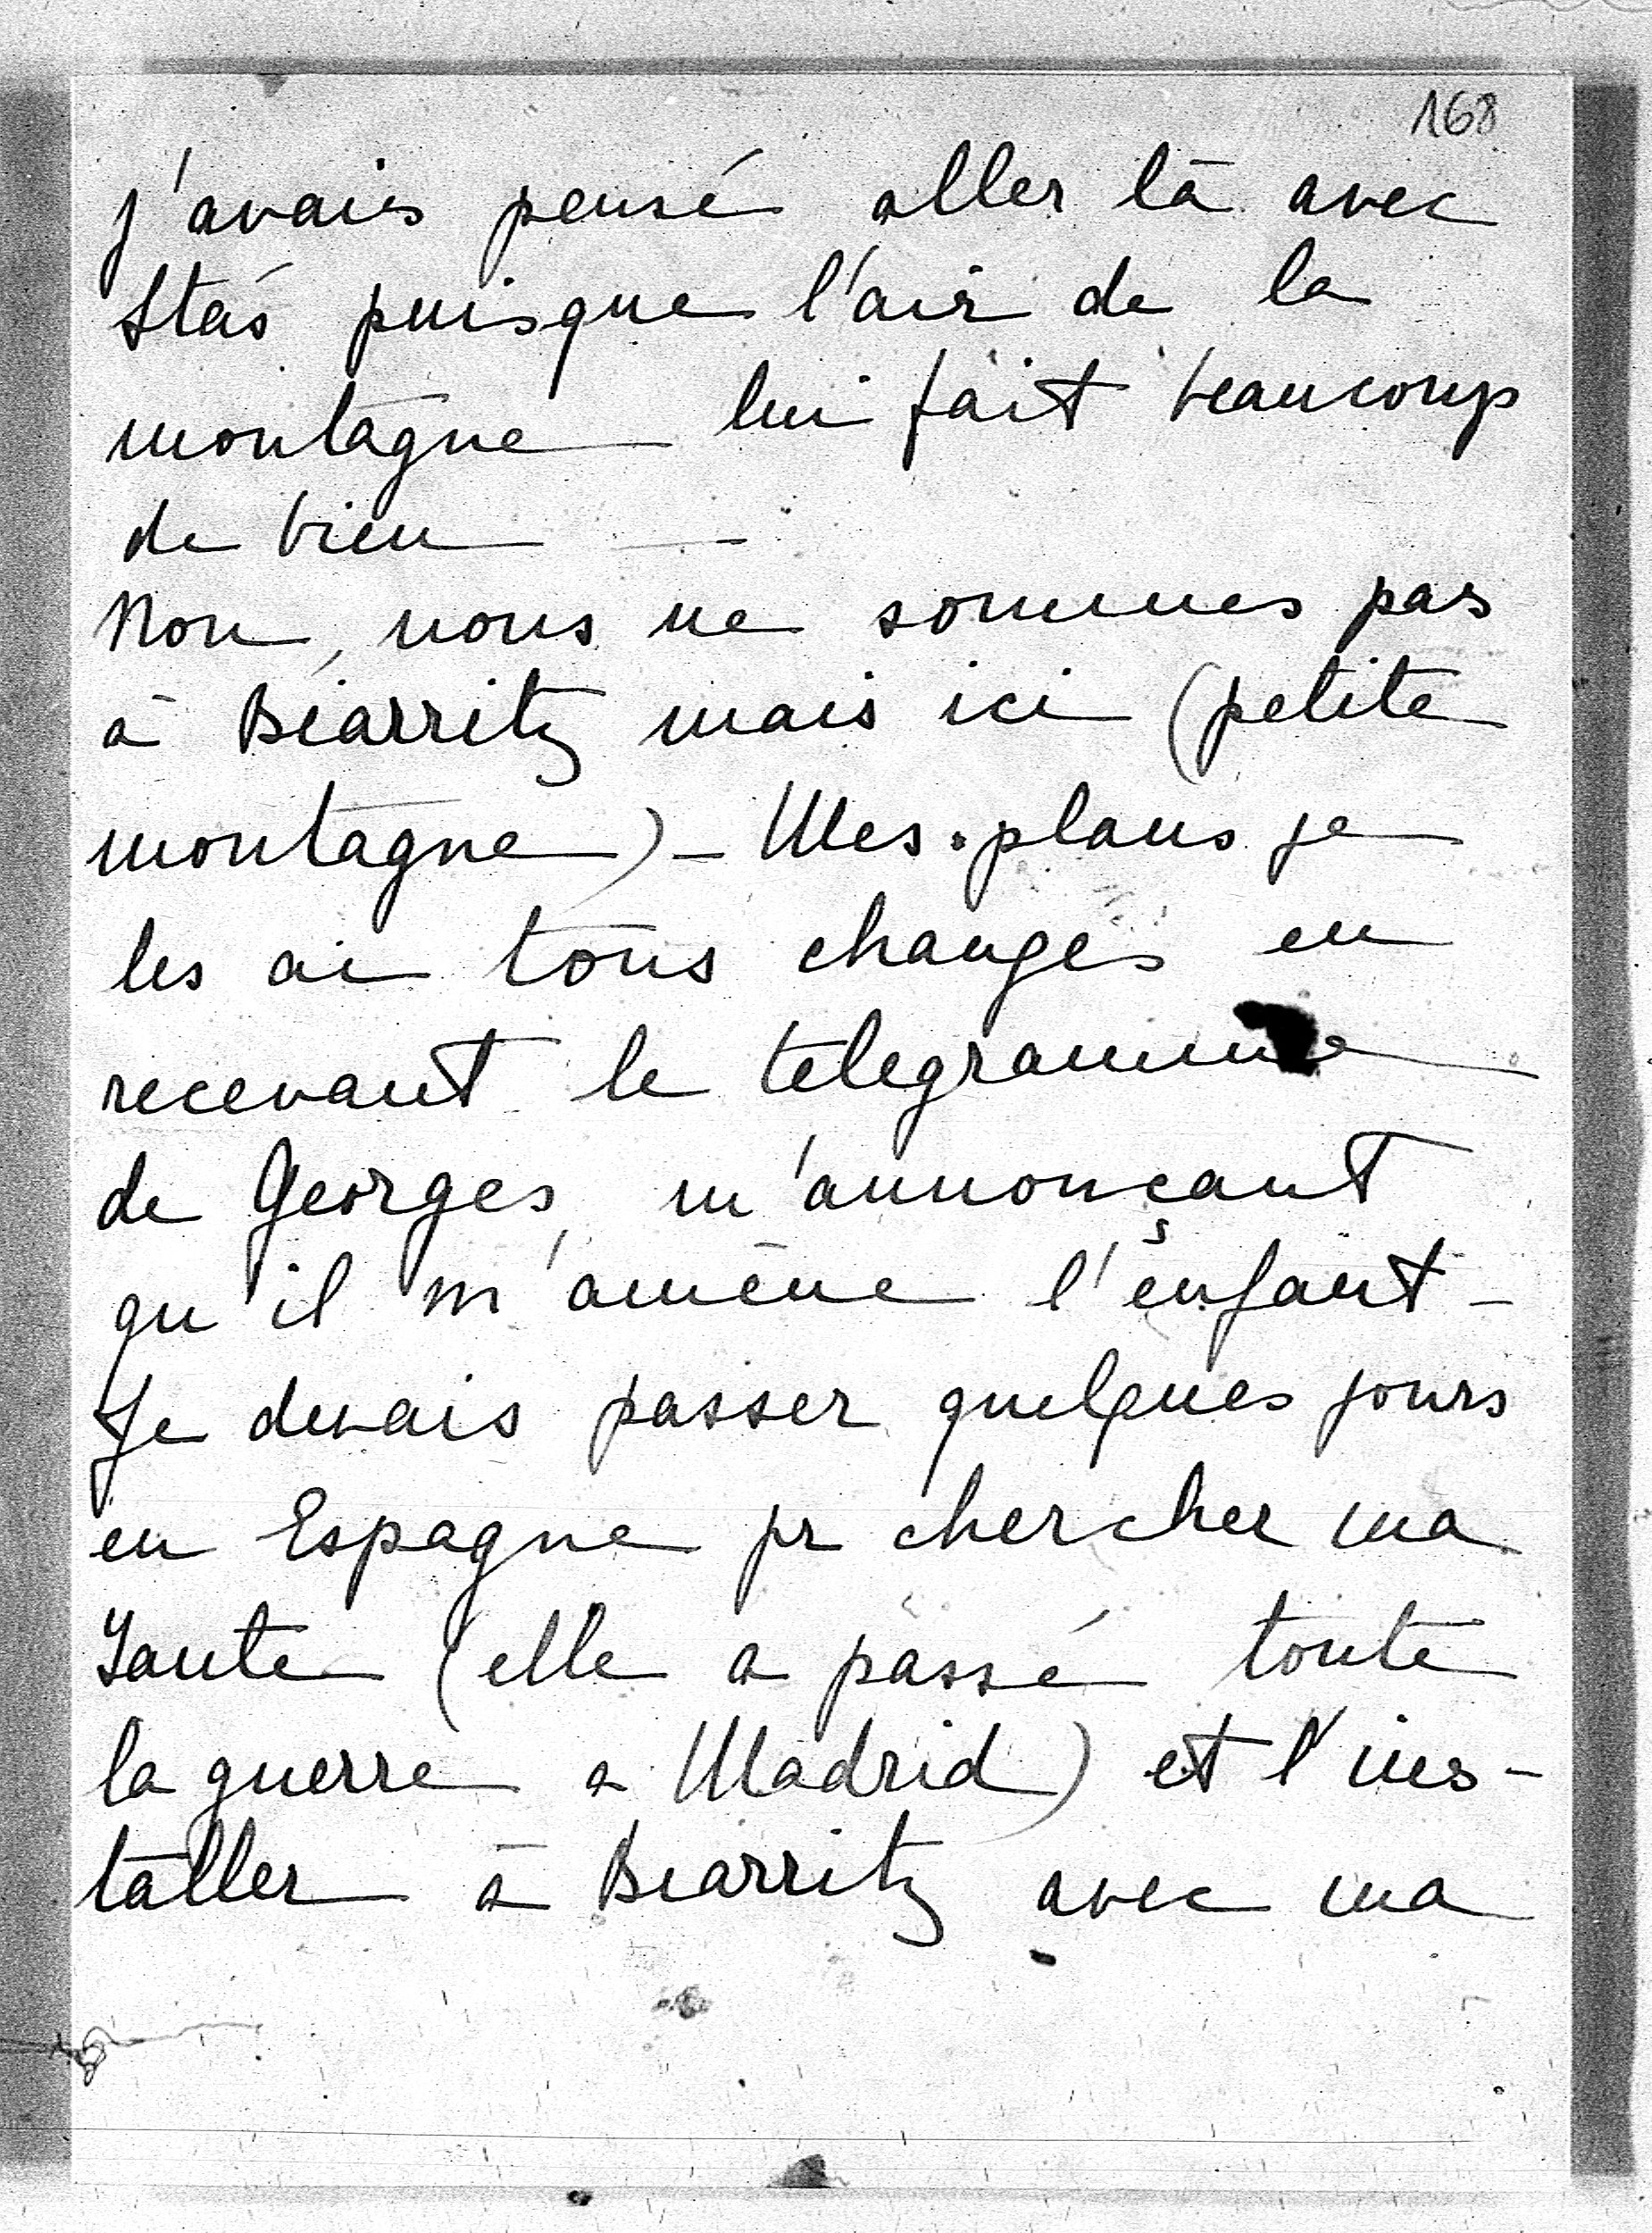 168
j'avais pensé aller là avec
Staś puisque l'air de la
montagne lui fait beaucoup
de bien —
Non, nous ne sommes pas
à Biarritz mais ici (petite
montagne) - Mes plans je
les ai tous changés en
recevant le telegramme
de Georges, m'annonçant
qu'il m'amène l'enfant -
Je devais passer quelques jours
en Espagne pr chercher ma
Tante (elle a passé toute
la guerre a Madrid) et l'ins-
taller à Biarritz avec ma